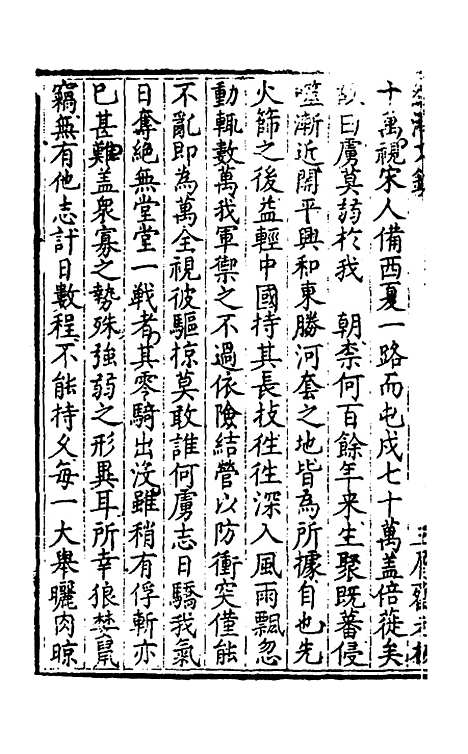 十萬視宋人備西夏一路而屯戍七十萬盖倍蓰矣
故曰虜莫弱於我　朝柰何百餘年来生聚既蕃侵
噬漸近開平興和東勝河套之地皆為所據自也先
火篩之後益輕中國恃其長技徃徃深入風雨飄忽
動輒數萬我軍禦之不過依險結營以防衝突僅能
不亂即為萬全視彼驅掠莫敢誰何虜志日驕我氣
日奪絕無堂堂一戰者其零騎出没雖稍有俘斬亦
已甚難盖衆寡之勢殊強弱之形異耳所幸狼㙺鼠
竊無有他志計日數程不能持乆每一大舉曬肉晾